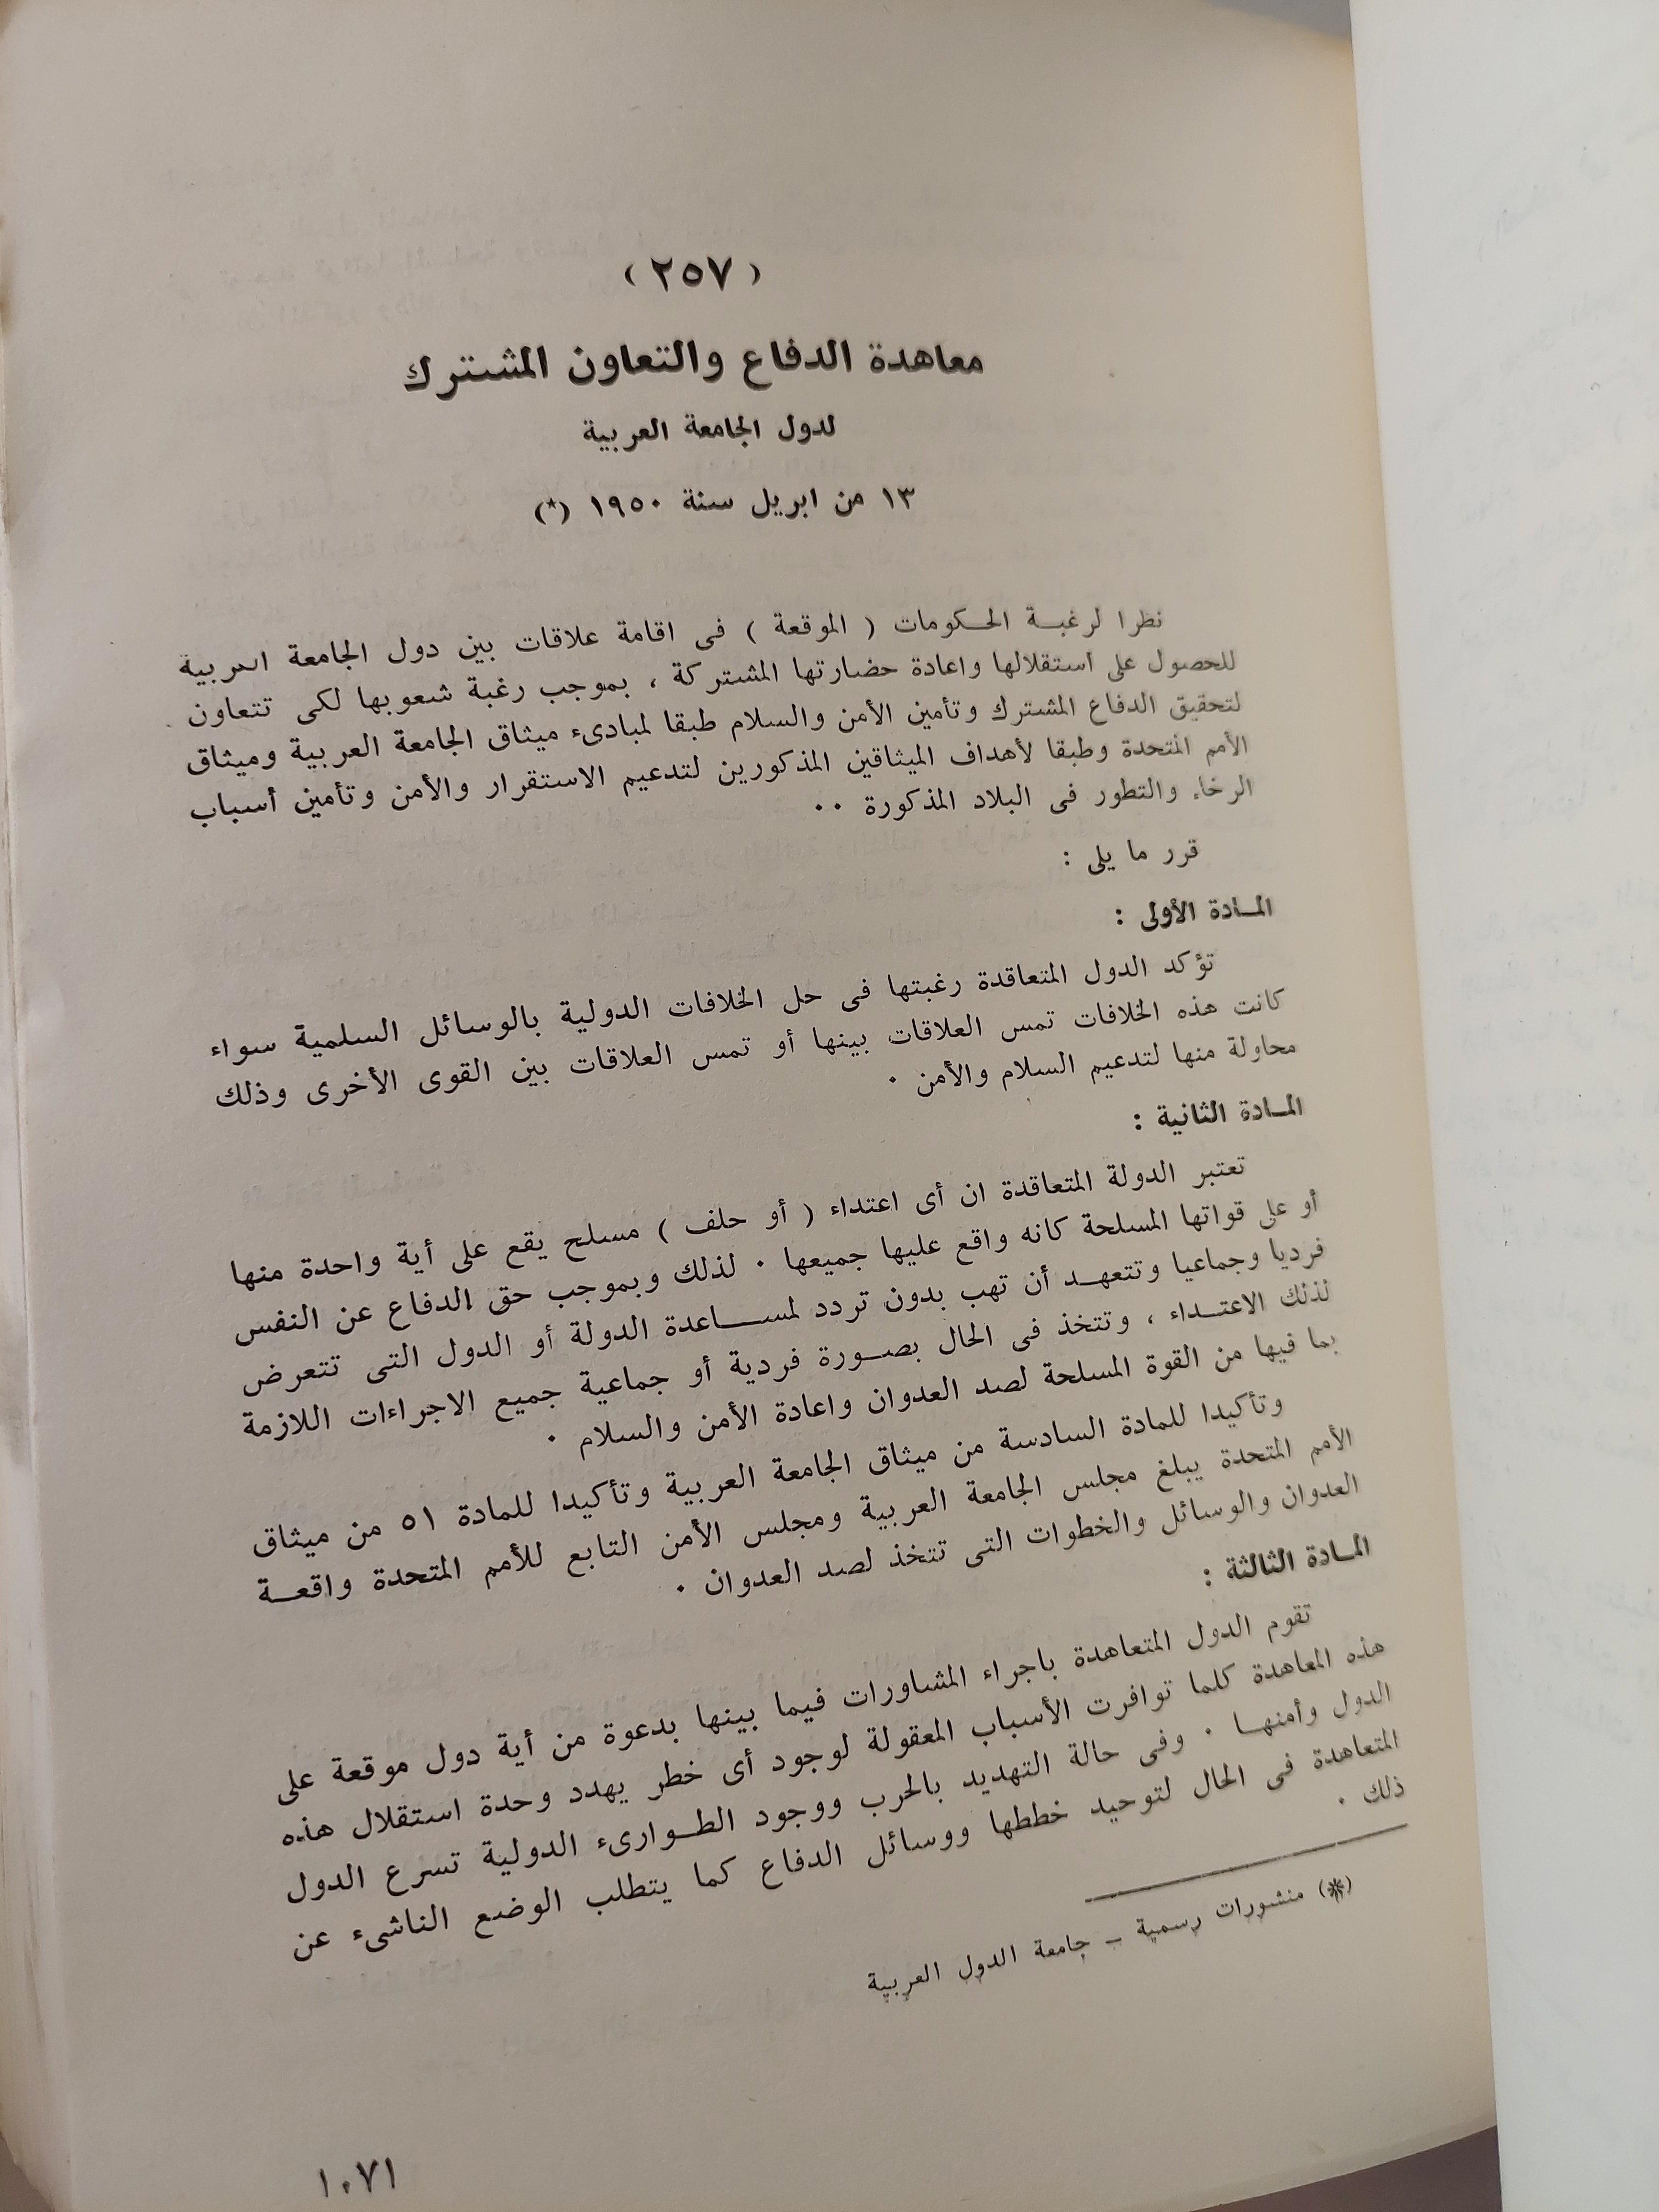 ( ٢٥٧ )
معاهدة الدفاع والتعاون المشترك
لدول الجامعة العربية
١٣ من ابريل سنة ١٩٥٠ (*)
نظرا لرغبة الحكومات ( الموقعة ) فى اقامة علاقات بين دول الجامعة العربية
للحصول على استقلالها واعادة حضارتها المشتركة ، بموجب رغبة شعوبها لكى تتعاون
لتحقيق الدفاع المشترك وتأمين الأمن والسلام طبقا لمبادىء ميثاق الجامعة العربية وميثاق
الأمم المتحدة وطبقا لأهداف الميثاقين المذكورين لتدعيم الاستقرار والأمن وتأمين أسباب
الرخاء والتطور فى البلاد المذكورة ٠٠
قرر ما يلى :
المادة الأولى :
تؤكد الدول المتعاقدة رغبتها فى حل الخلافات الدولية بالوسائل السلمية سواء
كانت هذه الخلافات تمس العلاقات بينها أو تمس العلاقات بين القوى الأخرى وذلك
محاولة منها لتدعيم السلام والأمن ٠
المادة الثانية :
تعتبر الدولة المتعاقدة ان أى اعتداء ( أو حلف ) مسلح يقع على أية واحدة منها
أو على قواتها المسلحة كانه واقع عليها جميعها ٠ لذلك وبموجب حق الدفاع عن النفس
فرديا وجماعيا وتتعهد أن تهب بدون تردد لمساعدة الدولة أو الدول التى تتعرض
لذلك الاعتداء ، وتتخذ فى الحال بصورة فردية أو جماعية جميع الاجراءات اللازمة
بما فيها من القوة المسلحة لصد العدوان واعادة الأمن والسلام ٠
وتأكيدا للمادة السادسة من ميثاق الجامعة العربية وتأكيدا للمادة ٥١ من ميثاق
الأمم المتحدة يبلغ مجلس الجامعة العربية ومجلس الأمن التابع للأمم المتحدة واقعة
العدوان والوسائل والخطوات التى تتخذ لصد العدوان ٠
المادة الثالثة :
تقوم الدول المتعاهدة باجراء المشاورات فيما بينها بدعوة من أية دول موقعة على
هذه المعاهدة كلما توافرت الأسباب المعقولة لوجود أى خطر يهدد وحدة استقلال هذه
الدول وأمنها ٠ وفى حالة التهديد بالحرب ووجود الطوارىء الدولية تسرع الدول
المتعاهدة فى الحال لتوحيد خططها ووسائل الدفاع كما يتطلب الوضع الناشىء عن
ذلك ٠
(*) منشورات رسمية ـ جامعة الدول العربية
١٠٧١